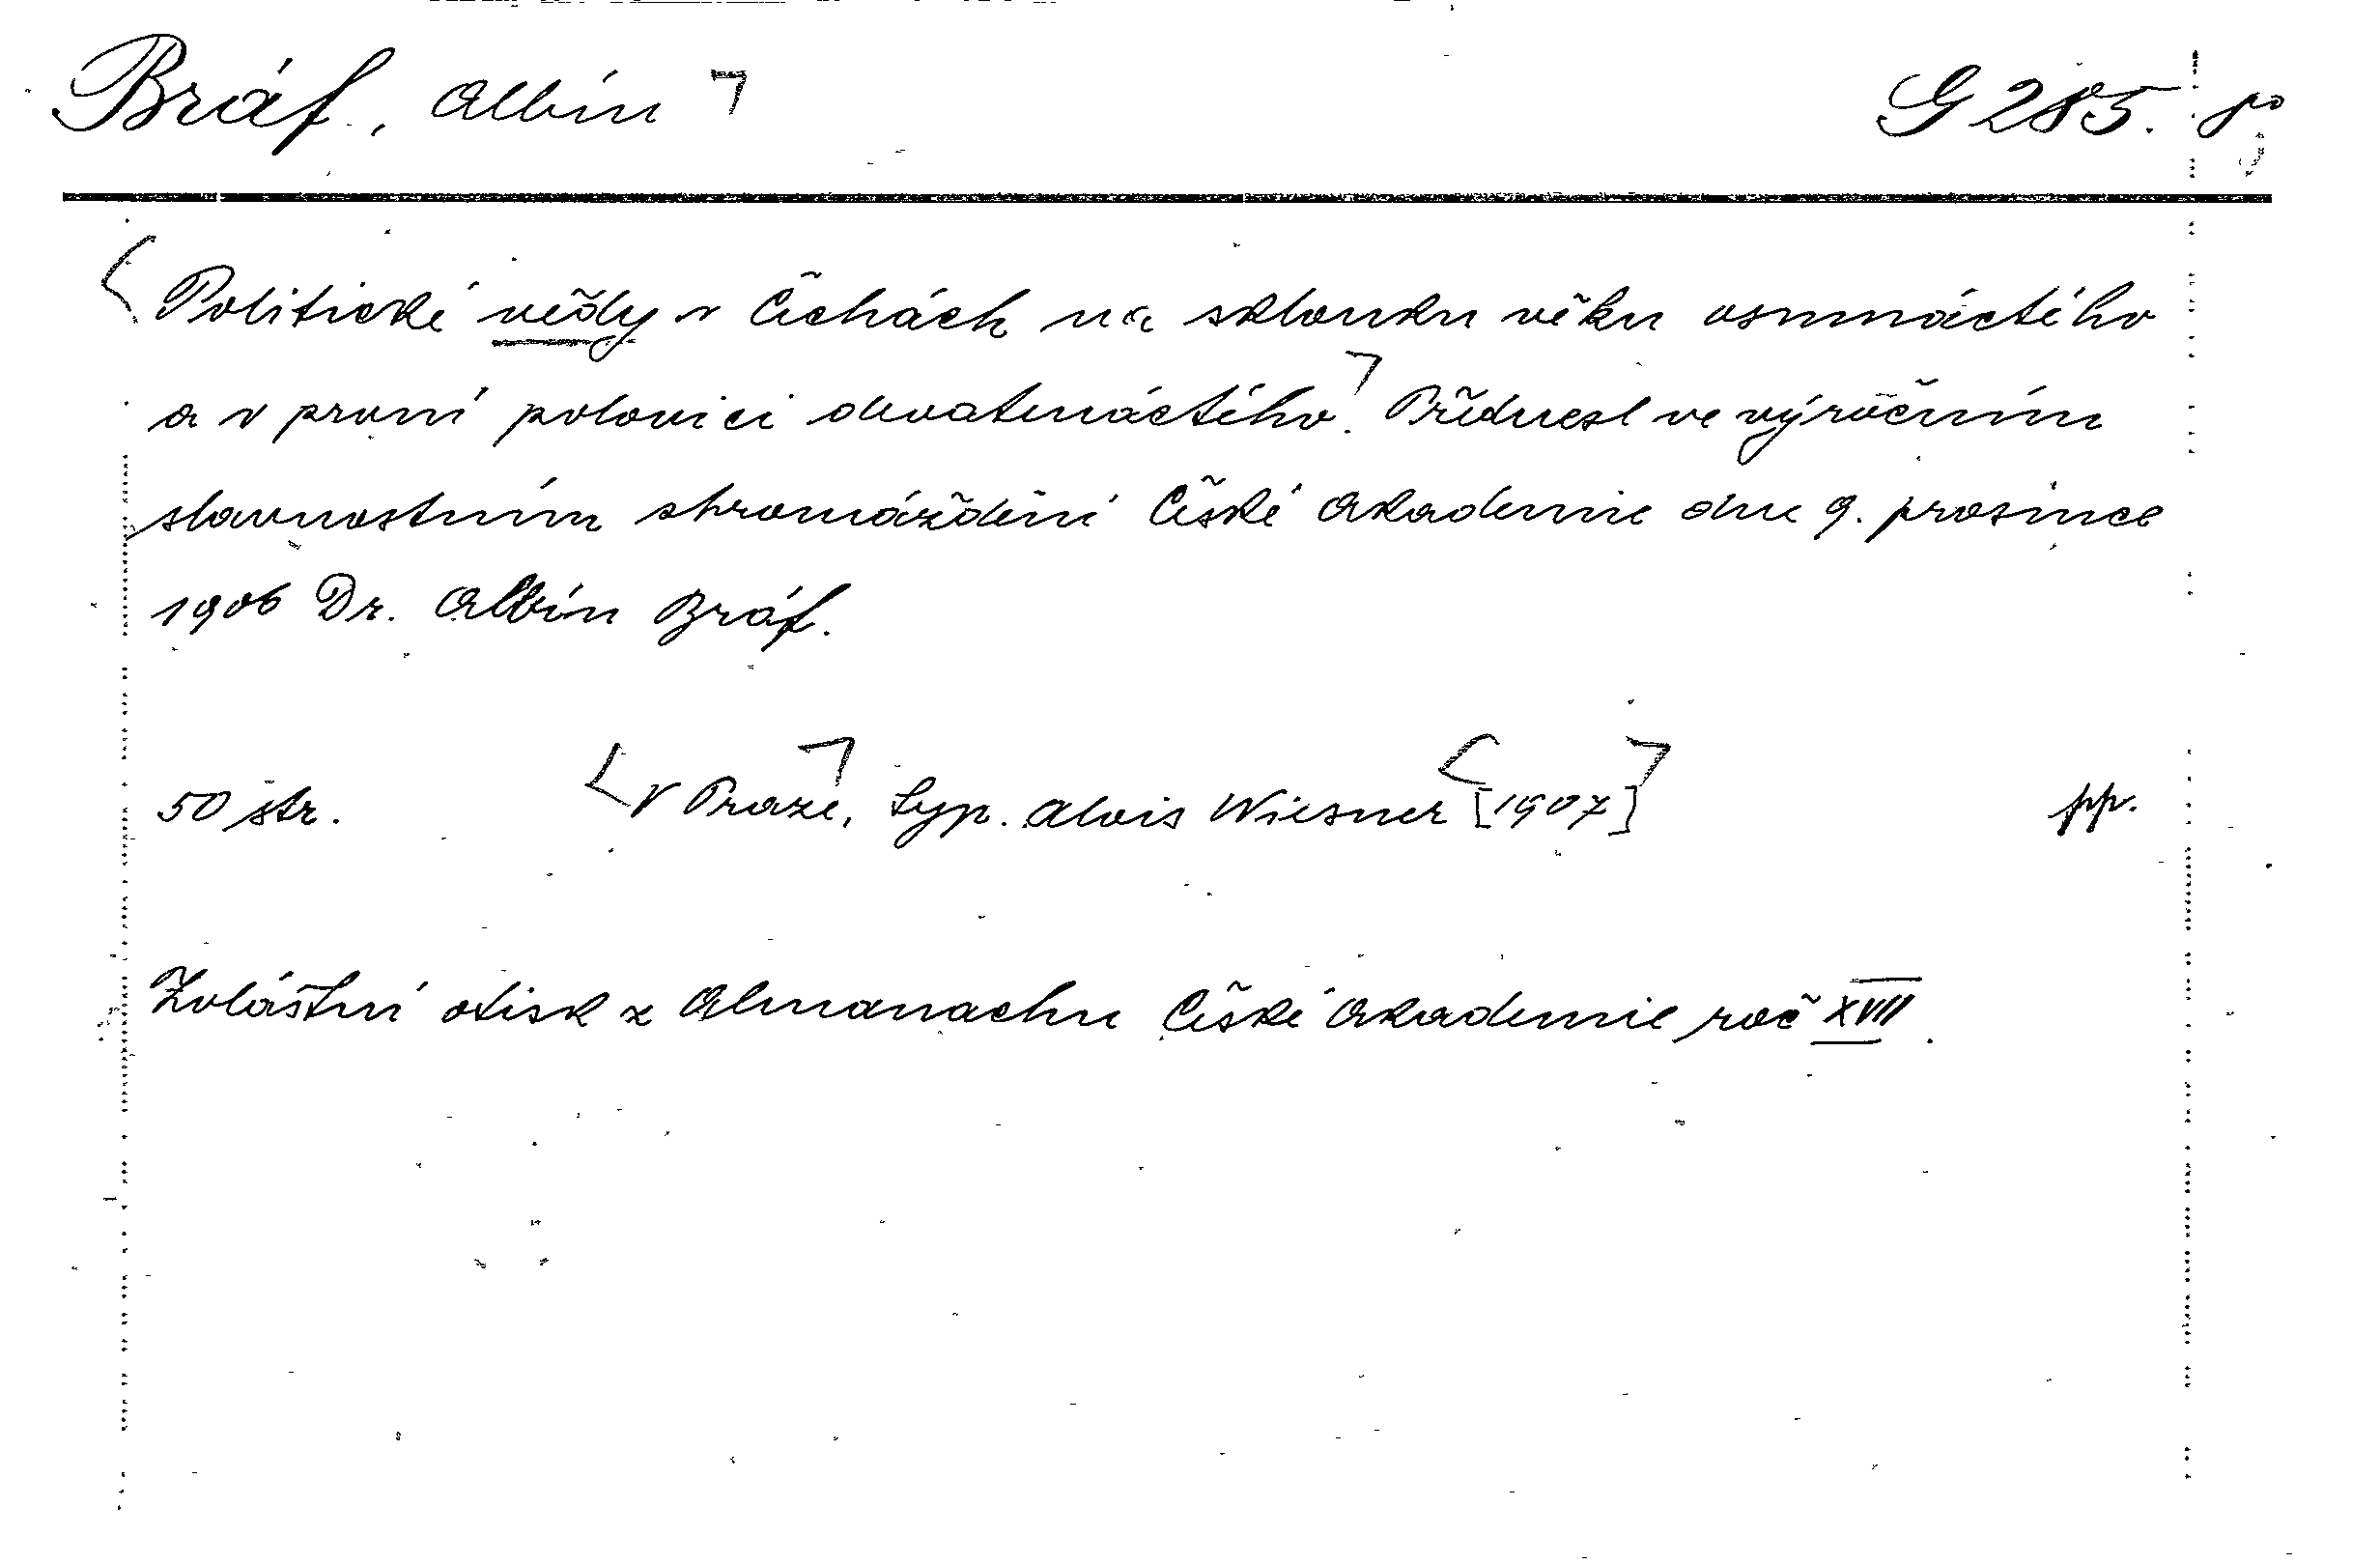 Bráf, Albín G 285.
Politické vědy v Čechách na sklonku věku osmnáctého
a v první polovici devatenáctého. Přednesl ve výročním
slavnostním shromáždění České Akademie dne 9. prosince
1906 Dr. Albín Bráf.
50 str. V Praze, Typ. Alois Wiesner [1907] pp.
Zvláštní otisk z Almanachu České Akademie roč XVII.